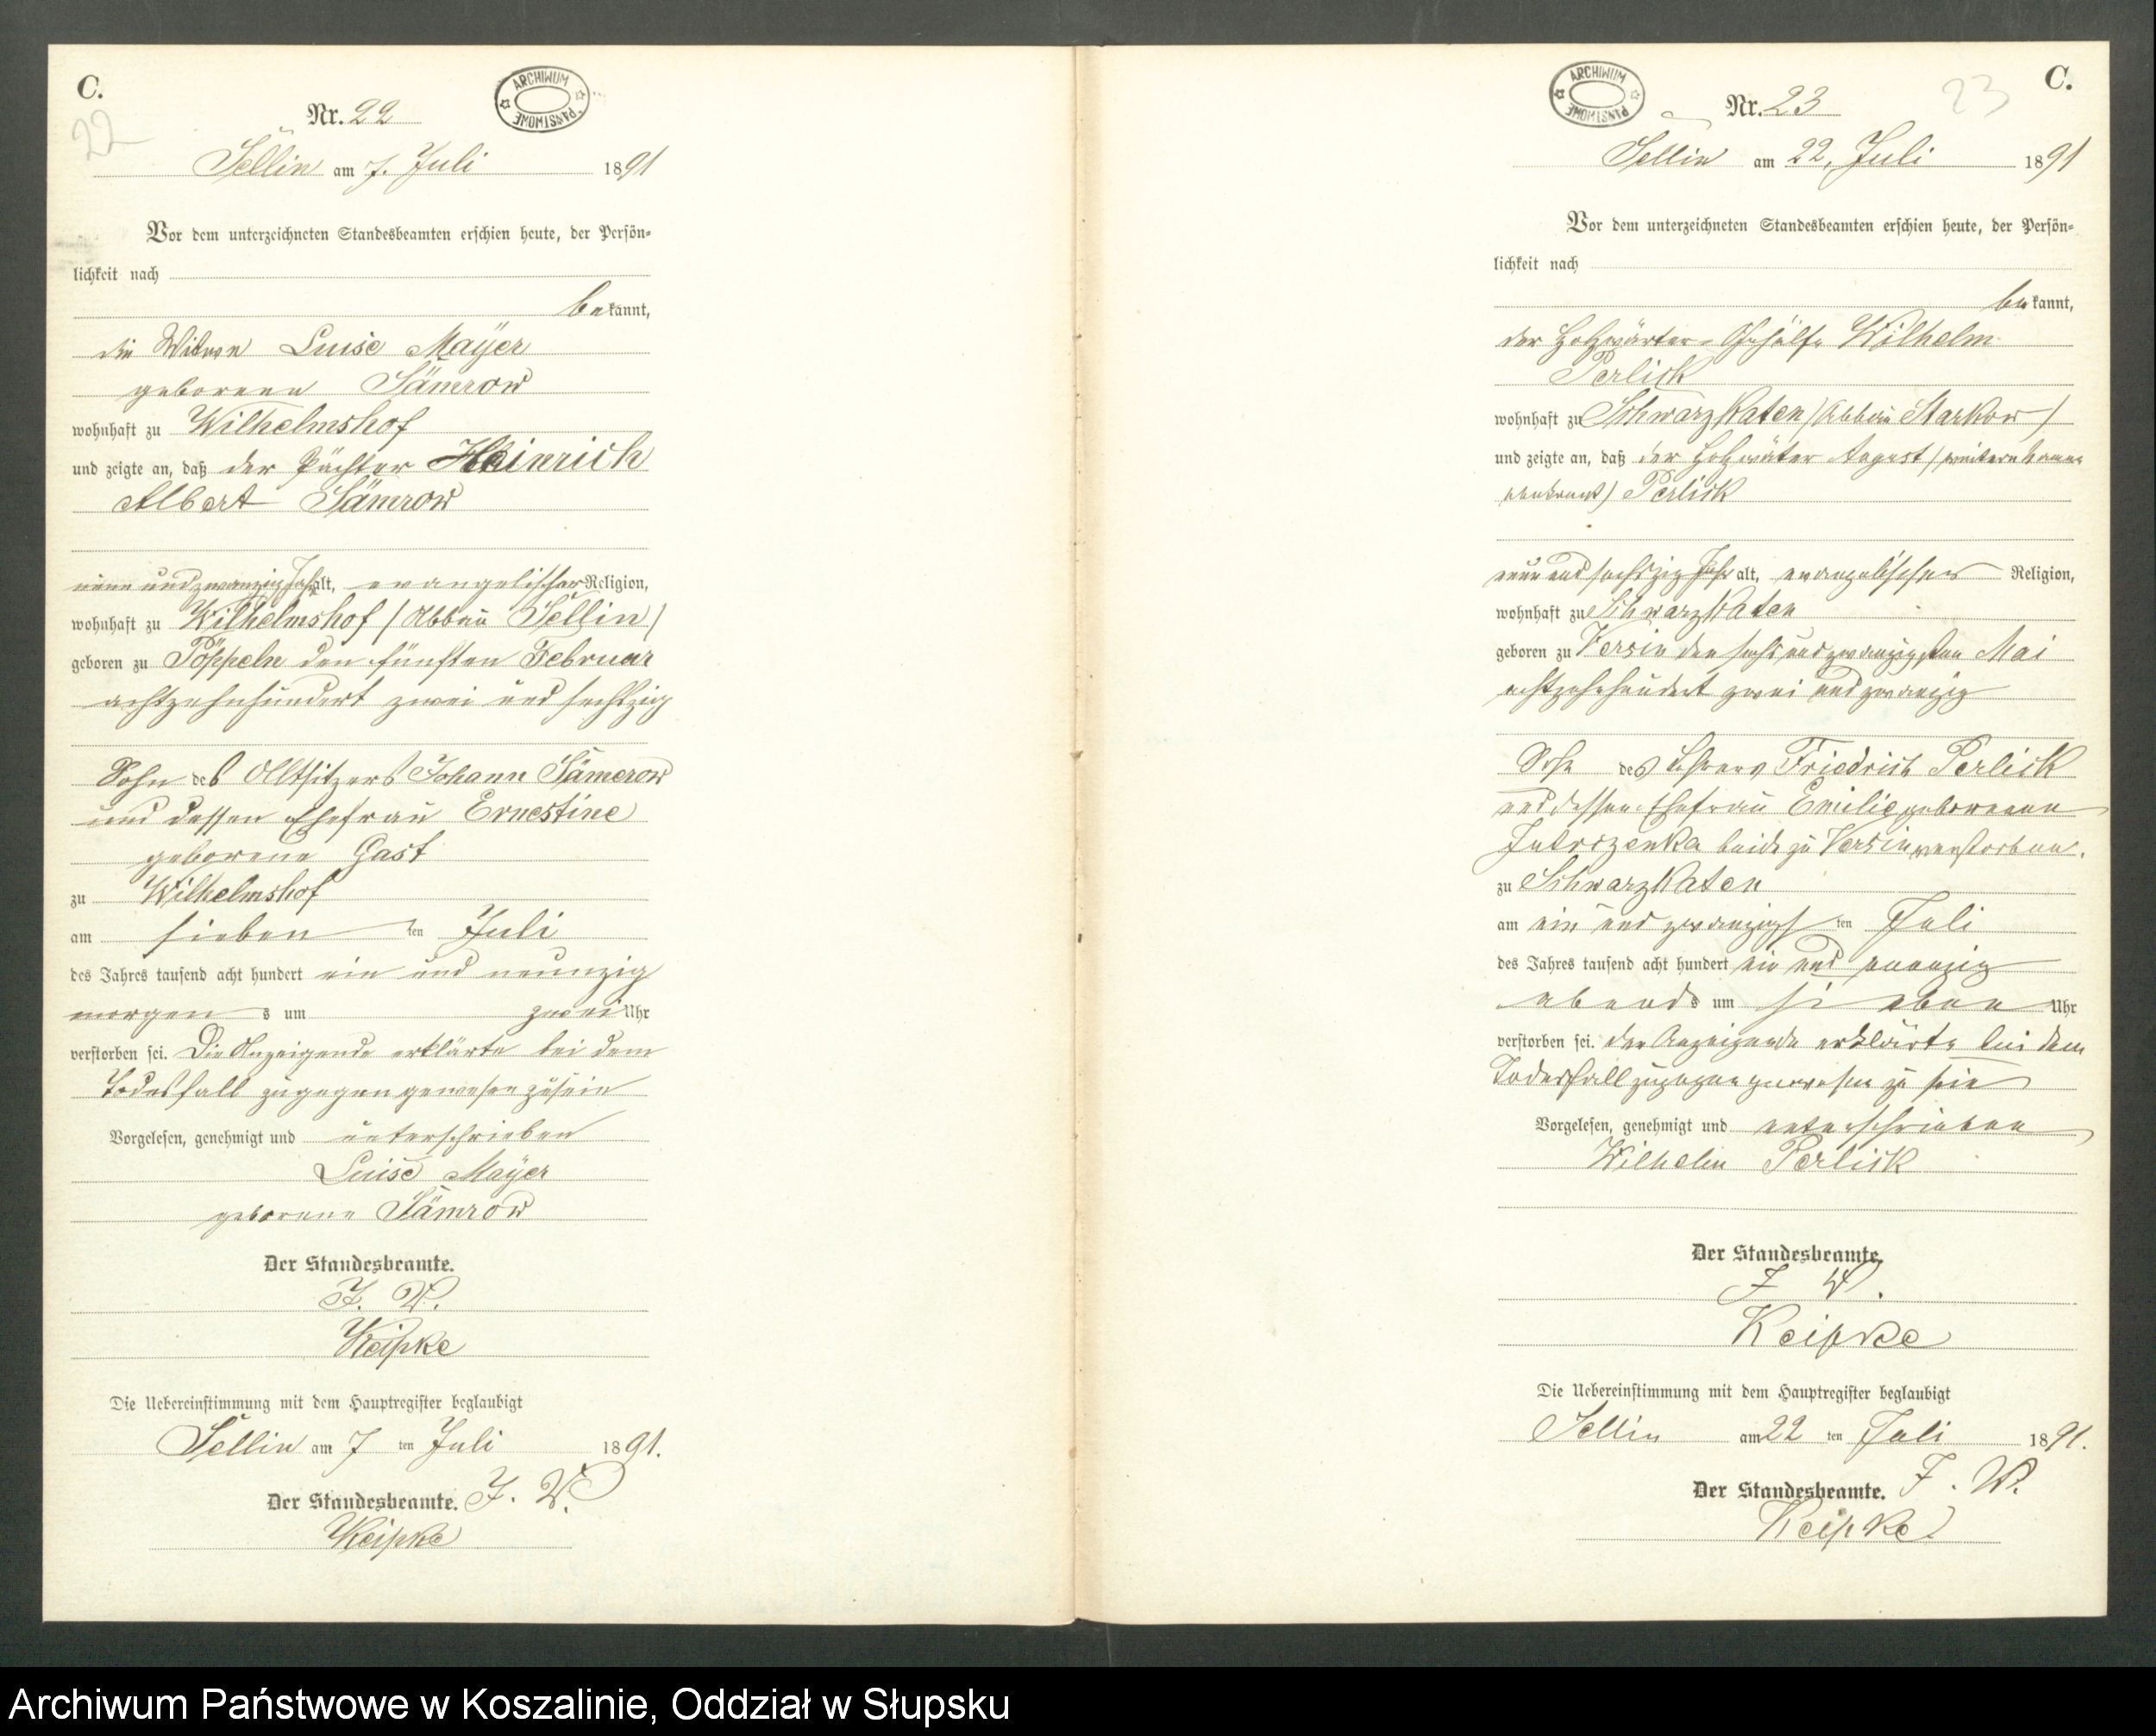 C.
22
Nr. 22
ARCHIWUM PAŃSTWOWE
Sellin am 7. Juli 1891
Vor dem unterzeichneten Standesbeamten erschien heute, der Persön-
lichkeit nach
bekannt,
die Witwe Luise Mayer
geborene Sämrow
wohnhaft zu Wilhelmshof
und zeigte an, daß der Pächter Heinrich
Albert Sämrow
neun und zwanzig Jahr alt, evangelischer Religion,
wohnhaft zu Wilhelmshof (Abbau Sellin)
geboren zu Pöppeln den fünften Februar
achtzehnhundert zwei und sechszig
Sohn des Altsitzers Johann Sämerow
und dessen Ehefrau Ernestine
geborene Gast
zu Wilhelmshof
am sieben ten Juli
des Jahres tausend acht hundert ein und neunzig
morgens um zwei Uhr
verstorben sei. Die Anzeigende erklärte bei dem
Todesfall zugegen gewesen zu sein
Vorgelesen, genehmigt und unterschrieben
Luise Mayer
geborene Sämrow
Der Standesbeamte.
J. V.
Keipke
Die Uebereinstimmung mit dem Hauptregister beglaubigt
Sellin am 7 ten Juli 1891.
Der Standesbeamte. J. V.
Keipke
C.
23
Nr. 23
ARCHIWUM PAŃSTWOWE
Sellin am 22. Juli 1891
Vor dem unterzeichneten Standesbeamten erschien heute, der Persön-
lichkeit nach
bekannt,
der Holzwärter-Gehülfe Wilhelm
Perlick
wohnhaft zu Schwarzkaten (Abbau Starkow)
und zeigte an, daß der Holzwärter August (
) Perlick
neun und sechszig Jahr alt, evangelischer Religion,
wohnhaft zu Schwarzkaten
geboren zu Versin den sechs und zwanzigsten Mai
achtzehnhundert zwei und zwanzig
Sohn des Lehrers Friedrich Perlick
und dessen Ehefrau Emilie geborenen
beide zu Versin verstorben.
zu Schwarzkaten
am ein und zwanzigsten Juli
des Jahres tausend acht hundert ein und neunzig
abends um sieben Uhr
verstorben sei. der Anzeigende erklärte bei dem
Todesfall zugegen gewesen zu sein
Vorgelesen, genehmigt und unterschrieben
Wilhelm Perlick
Der Standesbeamte.
J. V.
Keipke
Die Uebereinstimmung mit dem Hauptregister beglaubigt
Sellin am 22 ten Juli 1891.
Der Standesbeamte. J. V.
Keipke
Archiwum Państwowe w Koszalinie, Oddział w Słupsku